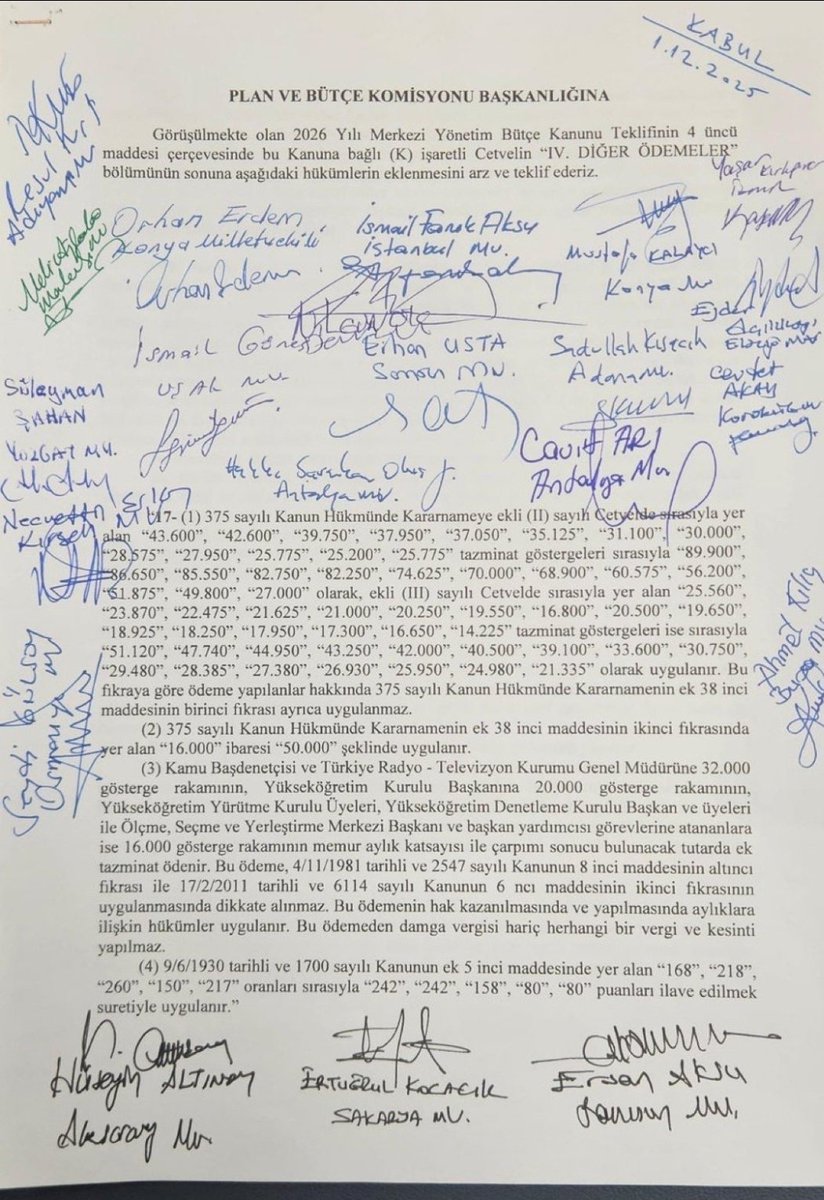 KABUL
1.12.2025
PLAN VE BÜTÇE KOMİSYONU BAŞKANLIĞINA
Görüşülmekte olan 2026 Yılı Merkezi Yönetim Bütçe Kanunu Teklifinin 4 üncü
maddesi çerçevesinde bu Kanuna bağlı (K) işaretli Cetvelin “IV. DİĞER ÖDEMELER”
bölümünün sonuna aşağıdaki hükümlerin eklenmesini arz ve teklif ederiz.
Resul Kurt
Adıyaman
Yaşar Kırkpınar
İzmir
Orhan Erdem
Konya Milletvekili
Orhan Erdem
İsmail Faruk Aksu
İstanbul Mv.
Mustafa KALAYCI
Konya Mv
İsmail Güneş
UŞAK MV.
Erhan USTA
Samsun MV.
Sadullah Kısacık
Adana Mv.
Ejder Açıkkapı
Elazığ Mv
Cevdet
AKAY
Karabük Mv
Süleyman
ŞAHAN
YOZGAT MV.
Cavit ARI
Antalya Mv
Antalya Mv.
“17- (1) 375 sayılı Kanun Hükmünde Kararnameye ekli (II) sayılı Cetvelde sırasıyla yer
alan “43.600”, “42.600”, “39.750”, “37.950”, “37.050”, “35.125”, “31.100”, “30.000”,
“28.575”, “27.950”, “25.775”, “25.200”, “25.775” tazminat göstergeleri sırasıyla “89.900”,
“86.650”, “85.550”, “82.750”, “82.250”, “74.625”, “70.000”, “68.900”, “60.575”, “56.200”,
“51.875”, “49.800”, “27.000” olarak, ekli (III) sayılı Cetvelde sırasıyla yer alan “25.560”,
“23.870”, “22.475”, “21.625”, “21.000”, “20.250”, “19.550”, “16.800”, “20.500”, “19.650”,
“18.925”, “18.250”, “17.950”, “17.300”, “16.650”, “14.225” tazminat göstergeleri ise sırasıyla
“51.120”, “47.740”, “44.950”, “43.250”, “42.000”, “40.500”, “39.100”, “33.600”, “30.750”,
“29.480”, “28.385”, “27.380”, “26.930”, “25.950”, “24.980”, “21.335” olarak uygulanır. Bu
fıkraya göre ödeme yapılanlar hakkında 375 sayılı Kanun Hükmünde Kararnamenin ek 38 inci
maddesinin birinci fıkrası ayrıca uygulanmaz.
(2) 375 sayılı Kanun Hükmünde Kararnamenin ek 38 inci maddesinin ikinci fıkrasında
yer alan “16.000” ibaresi “50.000” şeklinde uygulanır.
(3) Kamu Başdenetçisi ve Türkiye Radyo - Televizyon Kurumu Genel Müdürüne 32.000
gösterge rakamının, Yükseköğretim Kurulu Başkanına 20.000 gösterge rakamının,
Yükseköğretim Yürütme Kurulu Üyeleri, Yükseköğretim Denetleme Kurulu Başkan ve üyeleri
ile Ölçme, Seçme ve Yerleştirme Merkezi Başkanı ve başkan yardımcısı görevlerine atananlara
ise 16.000 gösterge rakamının memur aylık katsayısı ile çarpımı sonucu bulunacak tutarda ek
tazminat ödenir. Bu ödeme, 4/11/1981 tarihli ve 2547 sayılı Kanunun 8 inci maddesinin altıncı
fıkrası ile 17/2/2011 tarihli ve 6114 sayılı Kanunun 6 ncı maddesinin ikinci fıkrasının
uygulanmasında dikkate alınmaz. Bu ödemenin hak kazanılmasında ve yapılmasında aylıklara
ilişkin hükümler uygulanır. Bu ödemeden damga vergisi hariç herhangi bir vergi ve kesinti
yapılmaz.
(4) 9/6/1930 tarihli ve 1700 sayılı Kanunun ek 5 inci maddesinde yer alan “168”, “218”,
“260”, “150”, “217” oranları sırasıyla “242”, “242”, “158”, “80”, “80” puanları ilave edilmek
suretiyle uygulanır.”
Ahmet Kılıç
Bursa Mv.
Hüseyin ALTINSOY
Aksaray Mv.
ERTUĞRUL KOCACIK
SAKARYA MV.
Ersan AKSU
Samsun Mv.